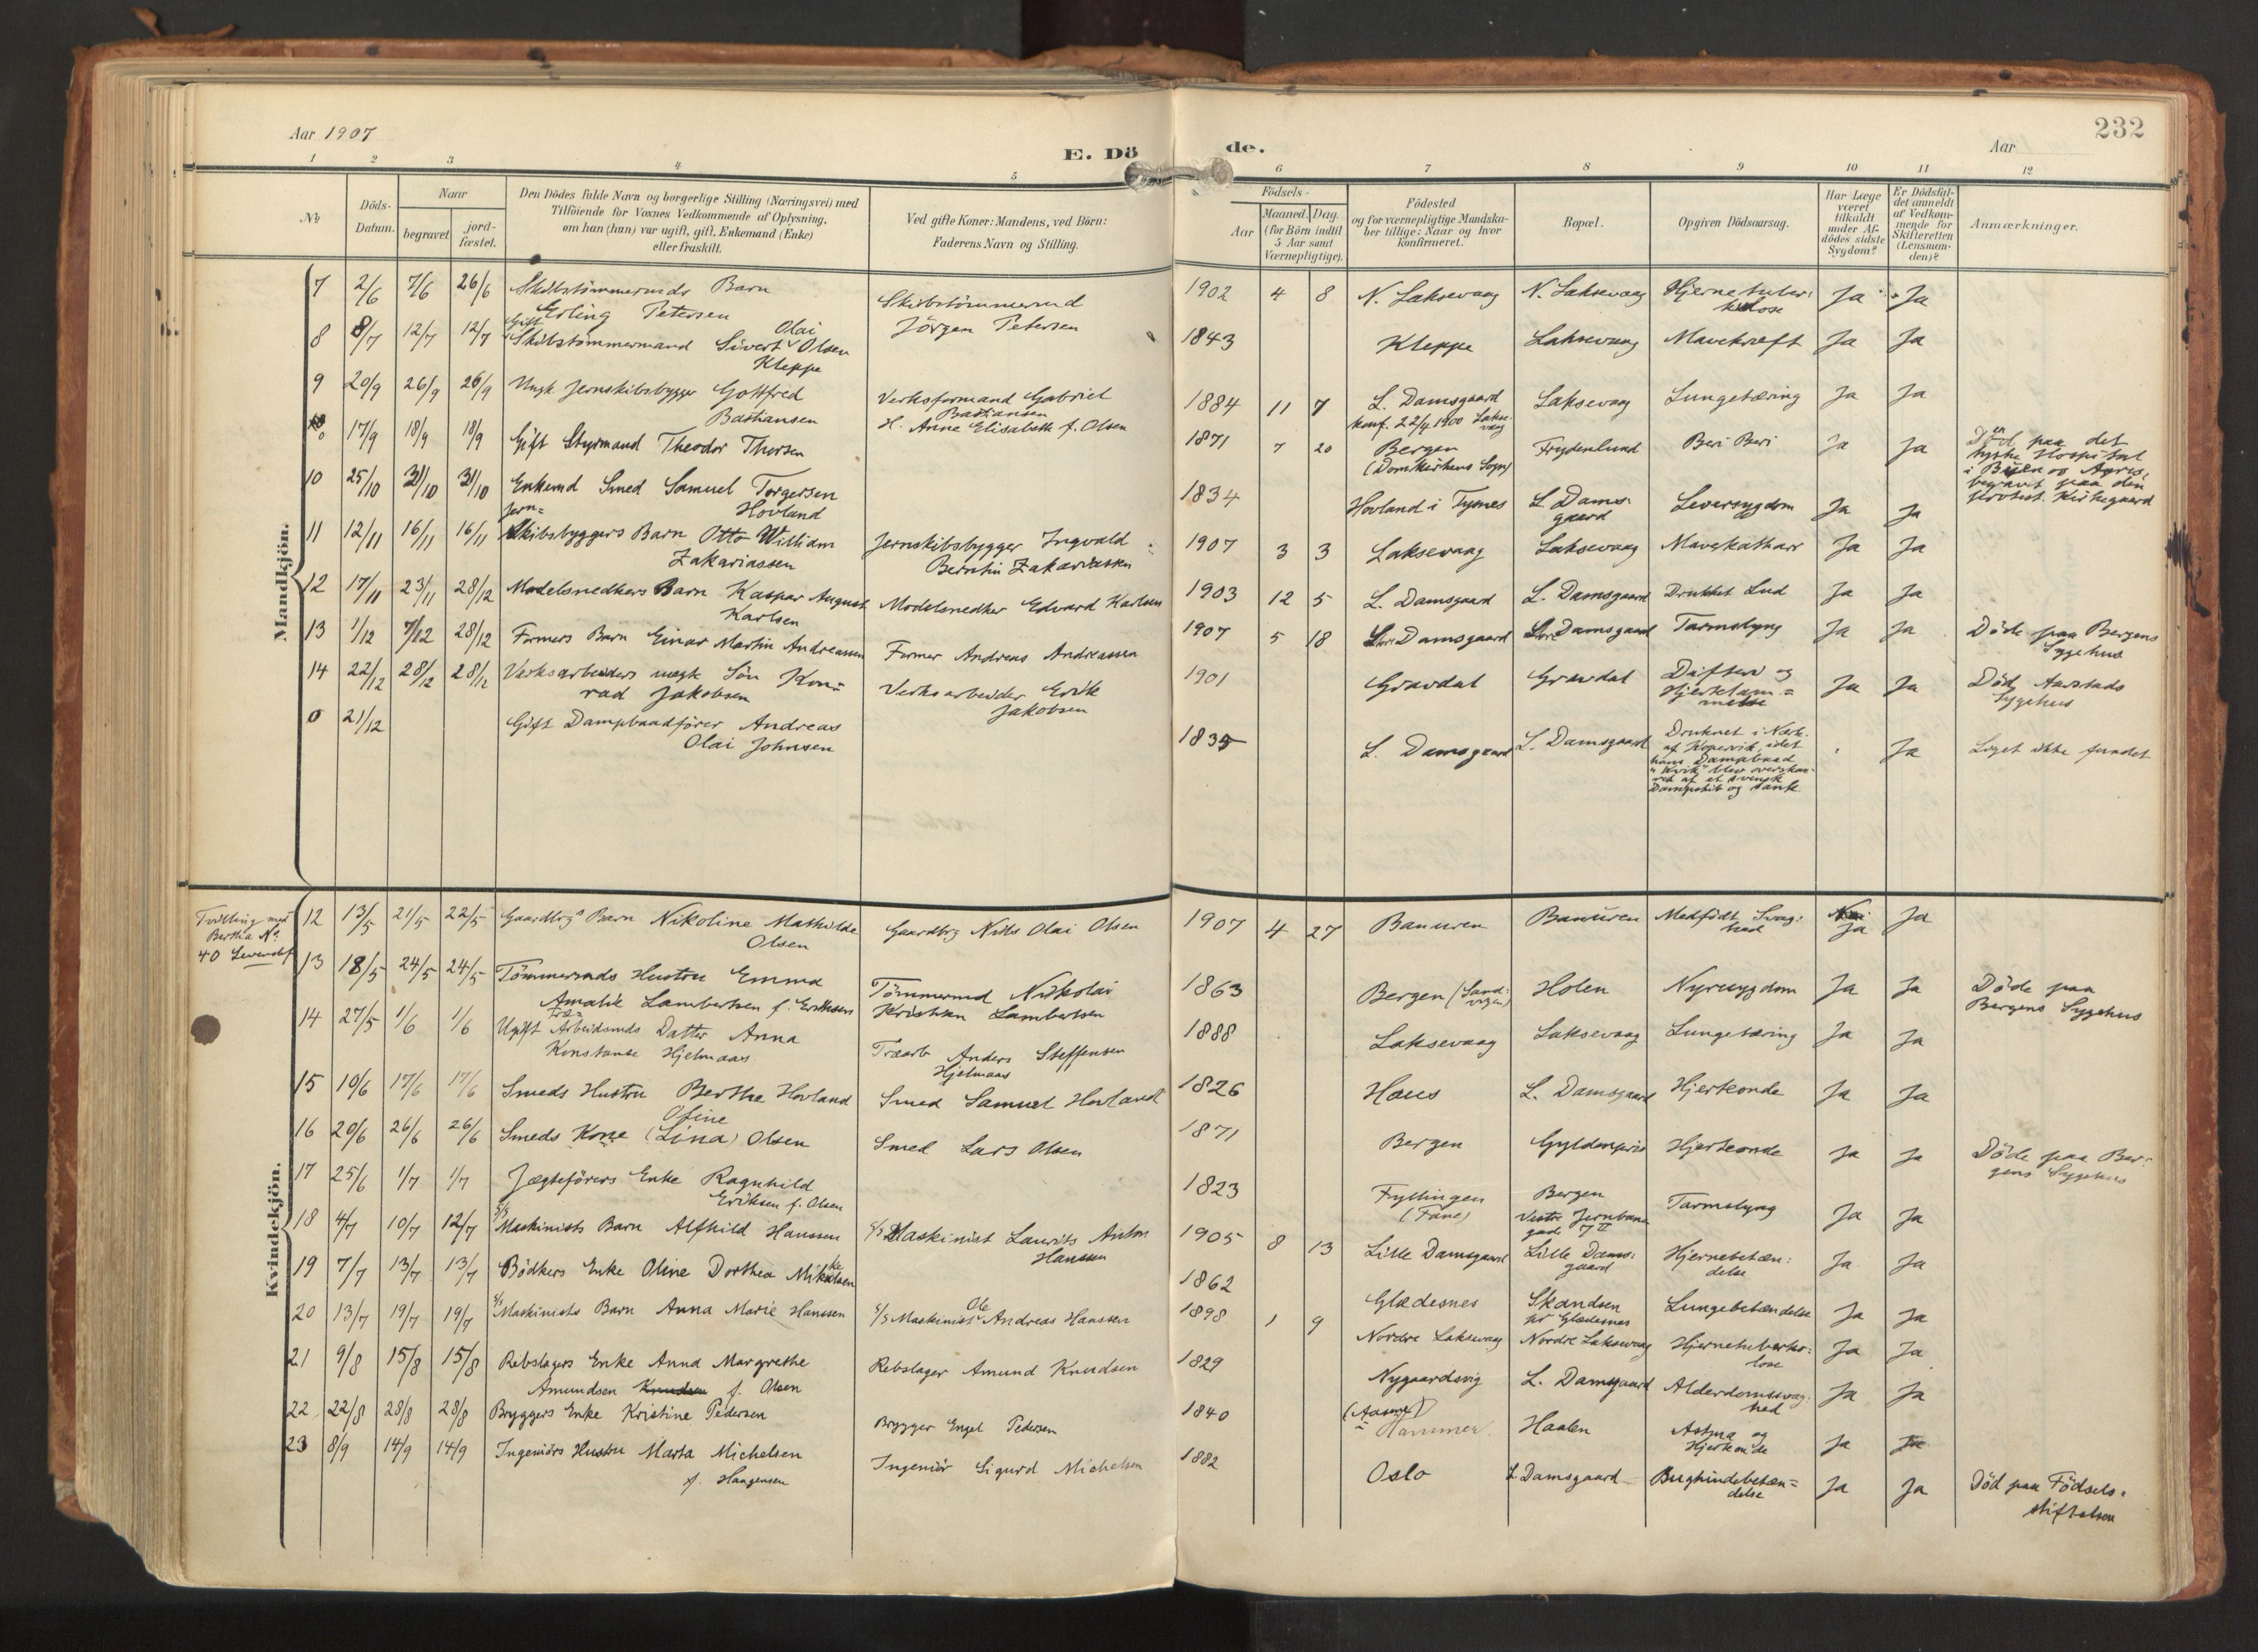 Aar 1907
E. Dö
de.
Aar
232
1 2 3 4 5 6 7 8 9 10 11 12
No
Döds-Datum.
Naar
begravet
jord-fæstet.
Den Dödes fulde Navn og borgerlige Stilling (Næringsvei) med
Tilföiende for Voxnes Vedkommende af Oplysning,
om han (hun) var ugift, gift, Enkemand (Enke)
eller fraskilt.
Ved gifte Koner: Mandens, ved Börn:
Faderens Navn og Stilling.
Födsels-
Aar
Maaned. Dag.
(for Börn indtil
5 Aar samt
Værnepligtige).
Födested
og for værnepligtige Mandska-
ber tillige: Naar og hvor
konfirmeret.
Bopæl.
Opgiven Dödsaarsag.
Har Læge
været
tilkaldt
under Af-
dödes sidste
Sygdom?
Er Dödsfal-
det anmeldt
af Vedkom-
mende for
Skifteretten
(Lensman-
den)?
Anmærkninger.
Mandkjön.
7 2/6 7/6 26/6 Skibstömmermds Barn
Erling Petersen
Skibstömmermd
Jörgen Petersen
1902 4 8 N. Laksevaag N. Laksevaag Hjernetuber:
kulose
Ja Ja
8 8/7 12/7 12/7 Gift
Skibstömmermand Sivert Olai Olsen
Kleppe
1843 Kleppe Laksevaag Mavekræft Ja Ja
9 20/9 26/9 26/9 Ungk. Jernskibsbygger Gottfred
Bastiansen
Verksformand Gabriel
Bastiansen
H. Anne Elisabeth f. Olsen
1884 11 7 L. Damsgaard
konf. 22/4 1900 Lakse-
vaag
Laksevaag Lungetæring Ja Ja
0 17/9 18/9 18/9 Gift Styrmand Theodor Thorsen
1871 7 20 Bergen
(Domkirkens Sogn)
Frydenlund Beri Beri Ja Ja
Död paa det
tyske Hospital
i Buen os Ayres,
begravet paa den
protest. Kirkegaard
10 25/10 31/10 31/10 Enkemd Smed Samuel Torgersen
Hovland
1834 Hovland i Tysnes L. Dams-
gaard
Leversygdom Ja Ja
11 12/11 16/11 16/11 Jern=
Skibsbyggers Barn Otto William
Zakariassen
Jernskibsbygger Ingvald
Berntin Zakariassen
1907 3 3 Laksevaag Laksevaag Mavekatharr Ja Ja
12 17/11 23/11 28/12 Modelsnedkers Barn Kaspar August
Karlsen
Modelsnedker Edvard Karlsen
1903 12 5 L. Damsgaard L. Damsgaard Drukket Lud Ja Ja
13 1/12 7/12 28/12 Formers Barn Einar Martin Andreassen
Former Andreas Andreassen
1907 5 18 Damsgaard Damsgaard Tarmslyng Ja Ja
Döde paa Bergens
Sygehus
14 22/12 28/12 28/12 Verksarbeiders uægte Sön Kon=
rad Jakobsen
Verksarbeider Erik
Jakobsen
1901 Gravdal Gravdal Difteri og
Hjertelam=
melse
Ja Ja
Död Aarstads
Sygehus
0 21/12 Gift Dampbaadförer Andreas
Olai Johnsen
1835 L. Damsgaard L. Damsgaard Druknet i Nærh.
af Kopervik, idet
hans Dampbaad
"Kvik" blev overskaa-
ret af et svensk
Dampskib og sank
Ja
Liget ikke fundet
Kvindekjön.
Tvilling med
Bertha No
40 Levendef.
12 13/5 21/5 22/5 Gaardbrgs Barn Nikoline Mathilde
Olsen
Gaardbrg Nils Olai Olsen
1907 4 27 Banuren Banuren Medfödt Svag:
hed
Nei
Ja
Ja
13 18/5 24/5 24/5 Tömmermds Hustru Emma
Amalie Lambertsen f. Eriksen
Tömmermd Nikolai
Kristian Lambertsen
1863 Bergen (Sand-
vigen)
Holen Nyresygdom Ja Ja
Döde paa
Bergens Sygehus
14 27/5 1/6 1/6 Ugift Træ=
Arbeidsmds Datter Anna
Konstanse Hjelmaas
Træarb Anders Steffensen
Hjelmaas
1888 Laksevaag Laksevaag Lungetæring Ja Ja
15 10/6 17/6 17/6 Smeds Hustru Berthe Hovland
Smed Samuel Hovland
1826 Haus L. Damsgaard Hjerteonde Ja Ja
16 20/6 26/6 26/6 Smeds Kone Ofine
(Lina) Olsen
Smed Lars Olsen
1871 Bergen Gyldenpris Hjerteonde Ja Ja
Döde paa Ber:
gens Sygehus
17 25/6 1/7 1/7 Jægteförers Enke Ragnhild
Eriksen f. Olsen
1823 Fyllingen
(Fane)
Bergen
Vestre Jernbane
gade 7 II
Tarmslyng Ja Ja
18 4/7 10/7 12/7 S/S
Maskinists Barn Alfhild Hanssen
S/S Maskinist Laurits Anton
Hanssen
1905 8 13 Lille Damsgaard Lille Dams:
gaard
Hjernebetæn:
delse
Ja Ja
19 7/7 13/7 13/7 Bödkers Enke Oline Dorthea Mikkelsen
1862 Glædesnes Skandsen
pr Glædesnes
Lungebetændelse Ja Ja
20 13/7 19/7 19/7 S/S Maskinists Barn Anna Marie Hanssen
S/S Maskinist Ole Andreas Hanssen
1898 1 9 Nordre Laksevaag Nordre Laksevaag Hjernetuberku:
lose
Ja Ja
21 9/8 15/8 15/8 Rebslagers Enke Anna Margrethe
Amundsen Knudsen f. Olsen
Rebslager Amund Knudsen
1829 Nygaardsvig L. Damsgaard Alderdomssvag:
hed
Ja Ja
22 22/8 28/8 28/8 Bryggers Enke Kristine Pedersen
Brygger Engel Pedersen
1840 Hammer Haalen Astma og
Hjerteonde
Ja Ja
23 8/9 14/9 14/9 Ingeniörs Hustru Marta Michelsen
f. Haugensen
Ingeniör Sigurd Michelsen
1882 Oslo L Damsgaard Bughindebetæn=
delse
Ja Ja
Död paa Födsels-
stiftelsen